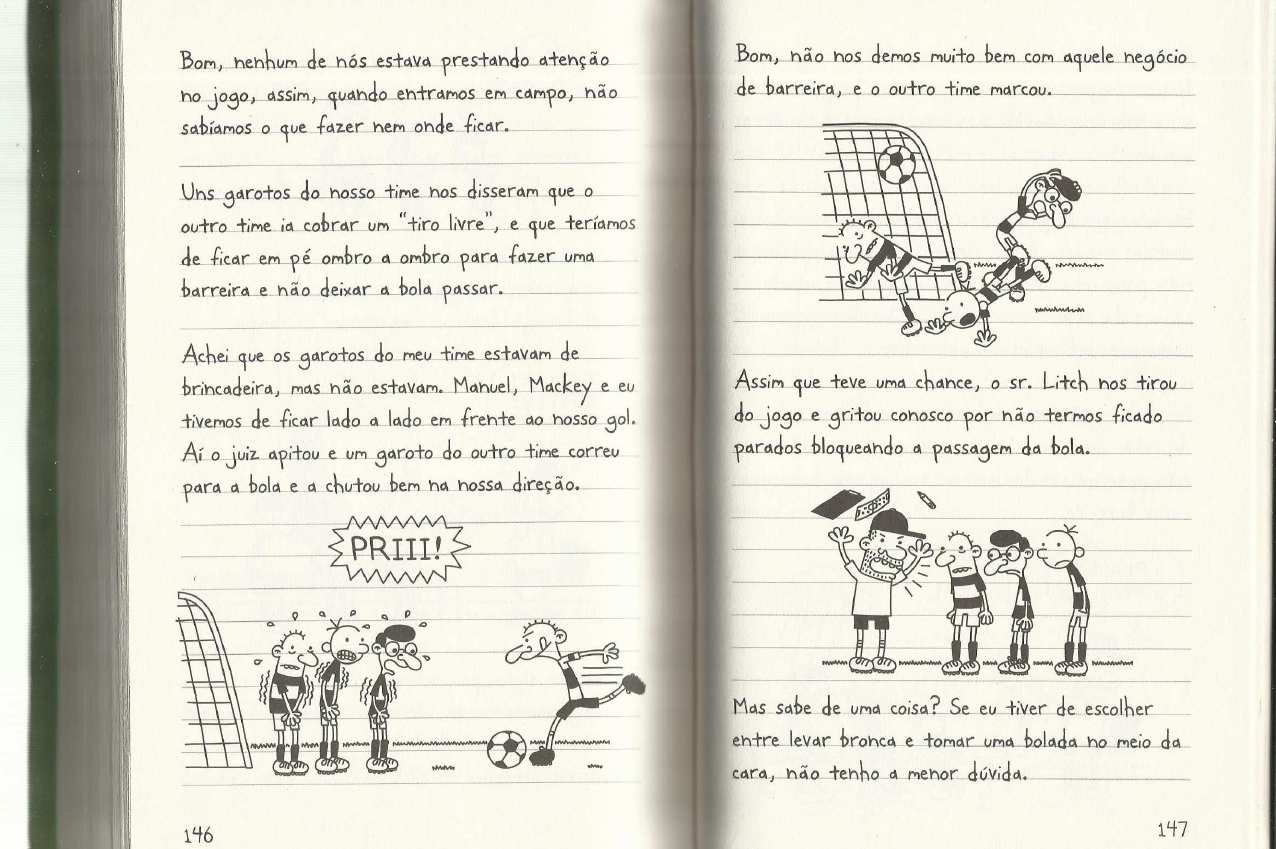 Bom, nenhum de nós estava prestando atenção
no jogo, assim, quando entramos em campo, não
sabíamos o que fazer nem onde ficar.
Uns garotos do nosso time nos disseram que o
outro time ia cobrar um "tiro livre", e que teríamos
de ficar em pé ombro a ombro para fazer uma
barreira e não deixar a bola passar.
Achei que os garotos do meu time estavam de
brincadeira, mas não estavam. Manuel, Mackey e eu
tivemos de ficar lado a lado em frente ao nosso gol.
Aí o juiz apitou e um garoto do outro time correu
para a bola e a chutou bem na nossa direção.
PRIII!
146
Bom, não nos demos muito bem com aquele negócio
de barreira, e o outro time marcou.
Assim que teve uma chance, o sr. Litch nos tirou
do jogo e gritou conosco por não termos ficado
parados bloqueando a passagem da bola.
Mas sabe de uma coisa? Se eu tiver de escolher
entre levar bronca e tomar uma bolada no meio da
cara, não tenho a menor dúvida.
147